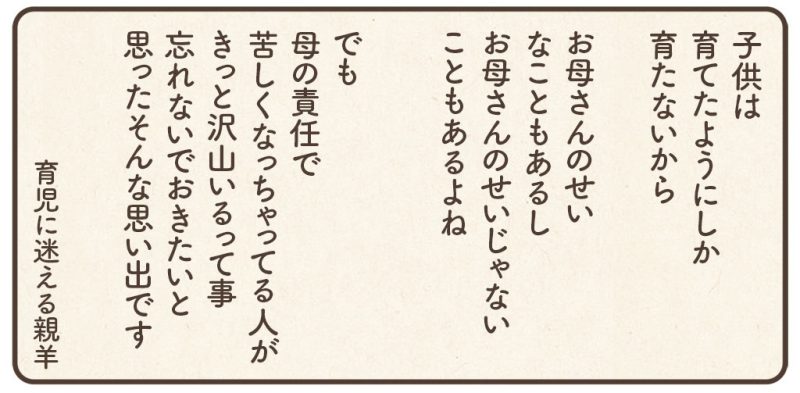 子供は
育てたようにしか
育たないから
お母さんのせい
なこともあるし
お母さんのせいじゃない
こともあるよね
でも
母の責任で
苦しくなっちゃってる人が
きっと沢山いるって事
忘れないでおきたいと
思ったそんな思い出です
育児に迷える親羊